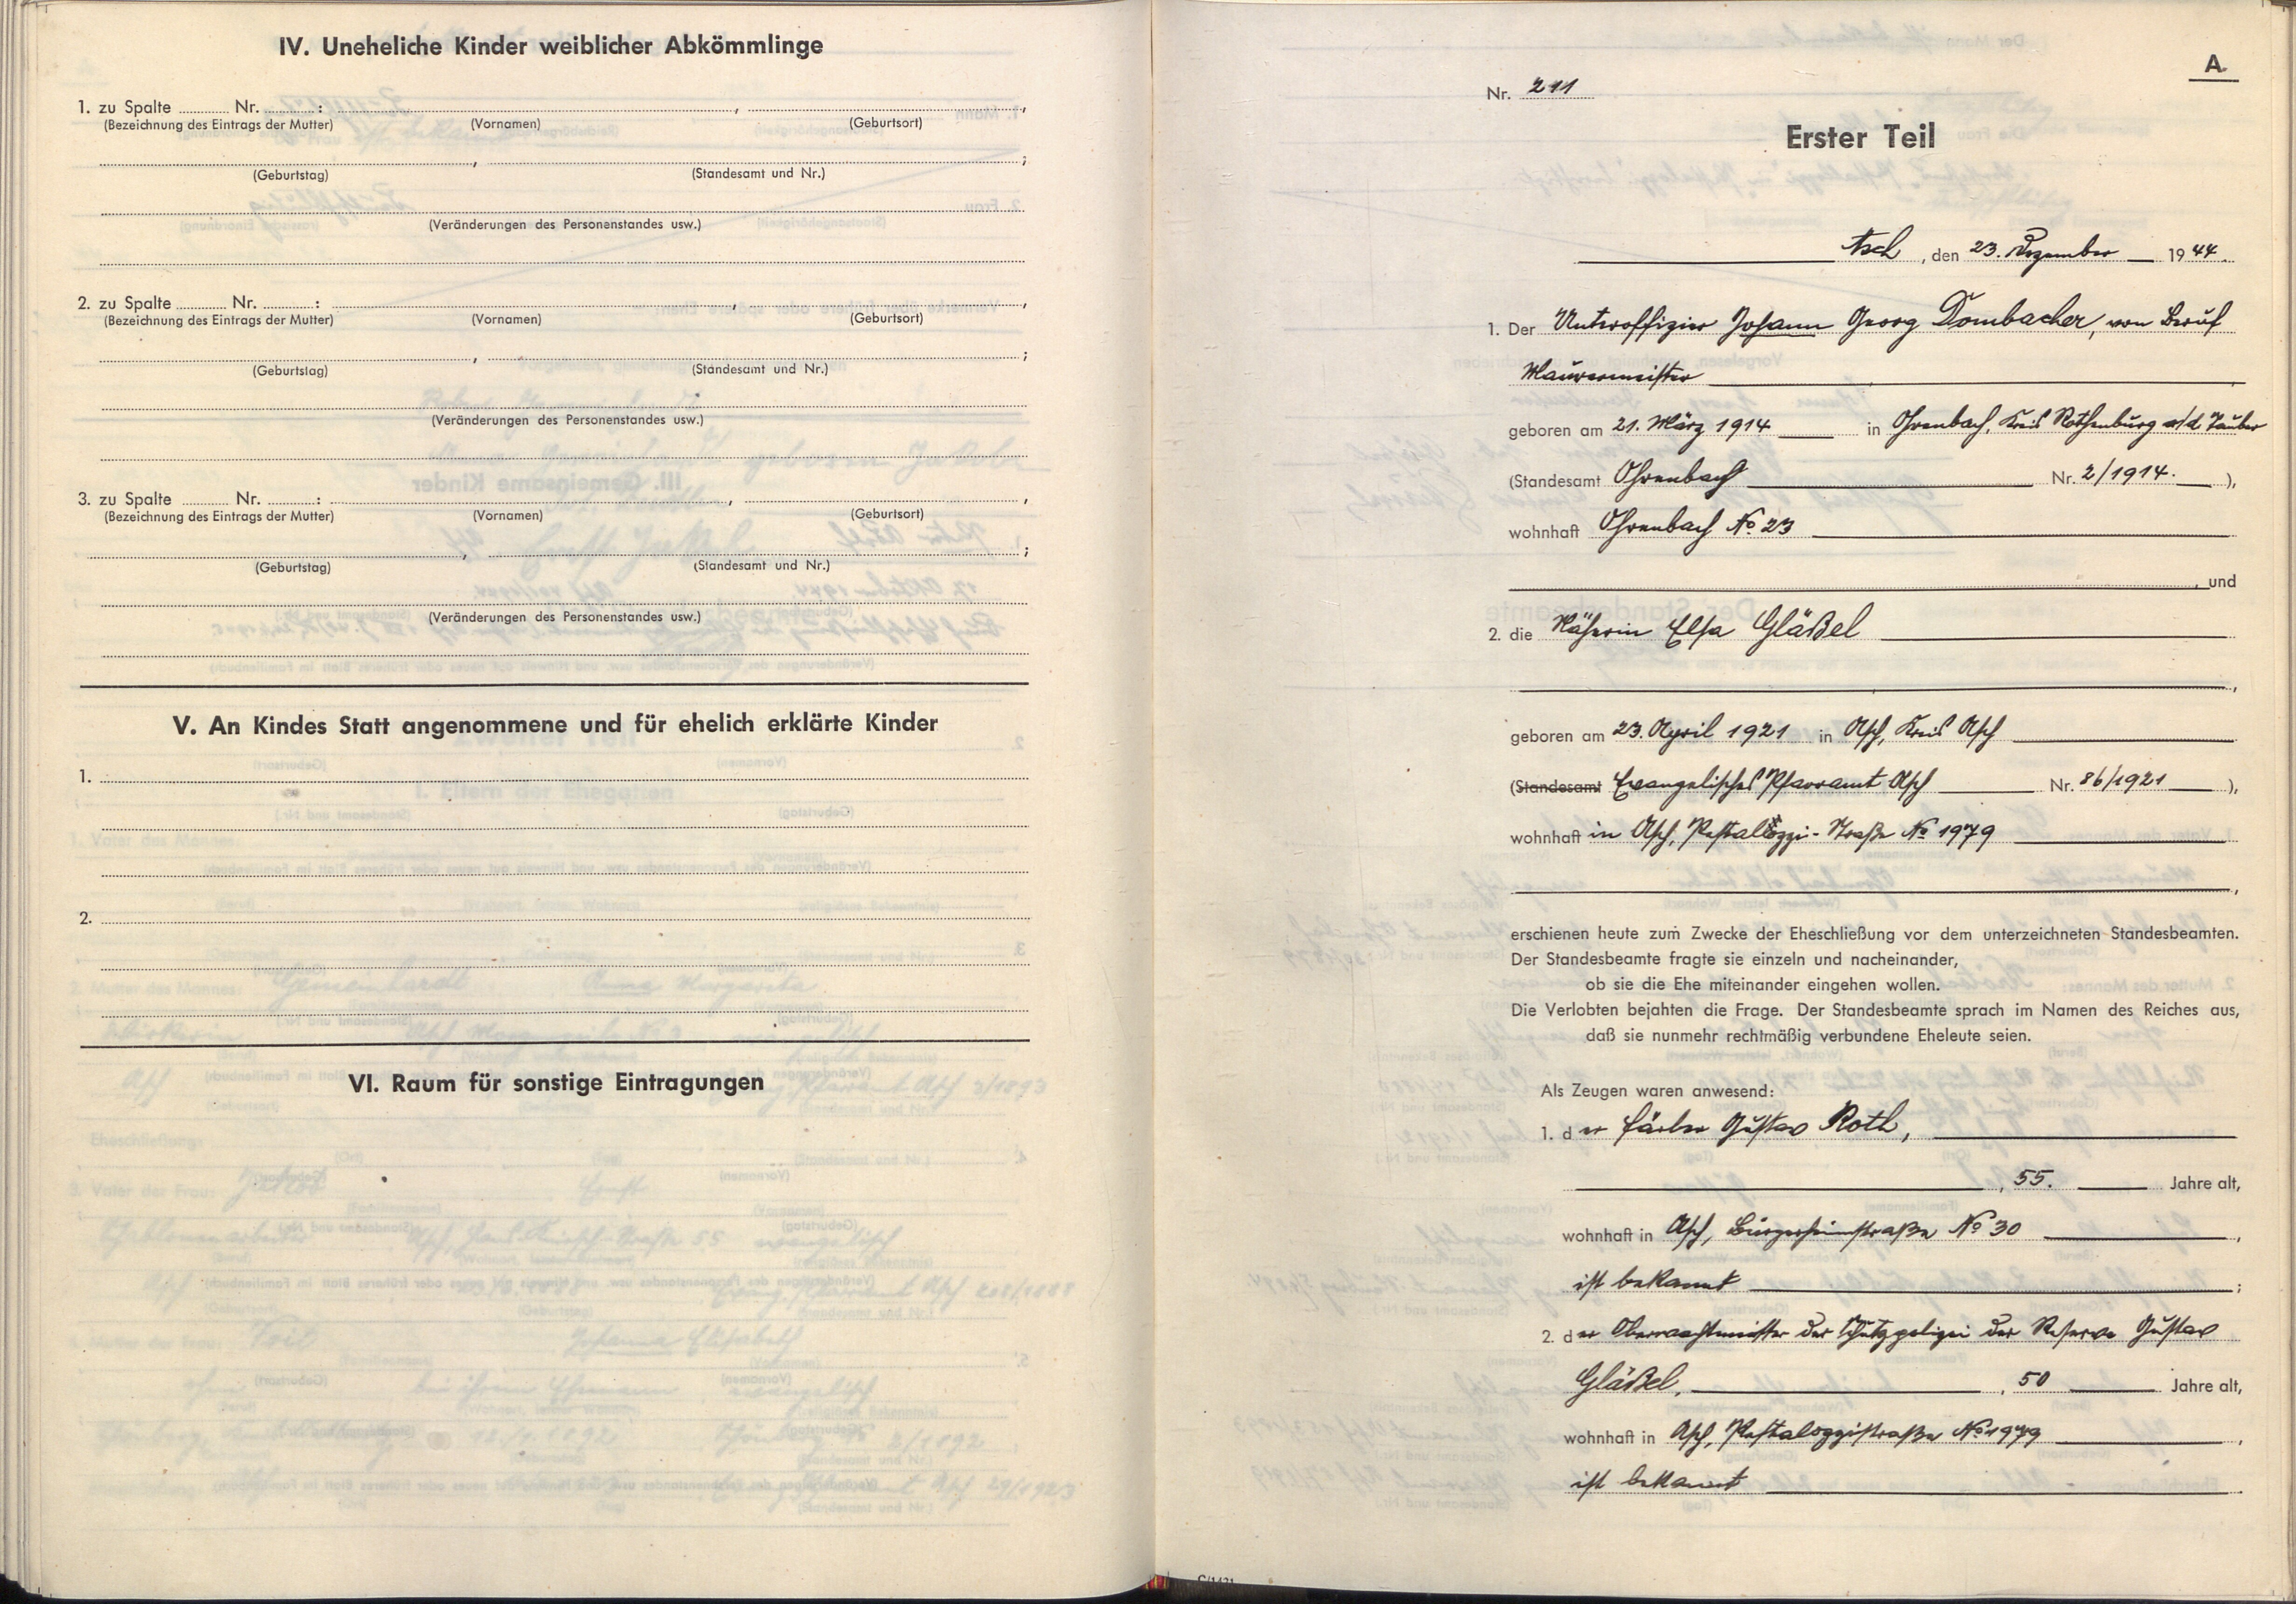 IV. Uneheliche Kinder weiblicher Abkömmlinge
1. zu Spalte .......... Nr. .......... : , ,
(Bezeichnung des Eintrags der Mutter) (Vornamen) (Geburtsort)
, ;
(Geburtstag) (Standesamt und Nr.)
(Veränderungen des Personenstandes usw.)
2. zu Spalte .......... Nr. .......... : , ,
(Bezeichnung des Eintrags der Mutter) (Vornamen) (Geburtsort)
, ;
(Geburtstag) (Standesamt und Nr.)
(Veränderungen des Personenstandes usw.)
3. zu Spalte .......... Nr. .......... : , ,
(Bezeichnung des Eintrags der Mutter) (Vornamen) (Geburtsort)
, ;
(Geburtstag) (Standesamt und Nr.)
(Veränderungen des Personenstandes usw.)
V. An Kindes Statt angenommene und für ehelich erklärte Kinder
1.
2.
VI. Raum für sonstige Eintragungen
A
Nr. 211
Erster Teil
Asch, den 23. Dezember 1944.
1. Der Unteroffizier Johann Georg Dombacher, von Beruf
Maurermeister
geboren am 21. März 1914 in Ohrenbach, Kreis Rothenburg a/d Tauber
(Standesamt Ohrenbach Nr. 2/1914. ),
wohnhaft Ohrenbach No 23
, und
2. die Näherin Elsa Gläßel
,
geboren am 23. April 1921 in Asch, Kreis Asch
(Standesamt Evangelisches Pfarramt Asch Nr. 86/1921 ),
wohnhaft in Asch, Pestalozzi-Straße No 1979
,
erschienen heute zum Zwecke der Eheschließung vor dem unterzeichneten Standesbeamten.
Der Standesbeamte fragte sie einzeln und nacheinander,
ob sie die Ehe miteinander eingehen wollen.
Die Verlobten bejahten die Frage. Der Standesbeamte sprach im Namen des Reiches aus,
daß sie nunmehr rechtmäßig verbundene Eheleute seien.
Als Zeugen waren anwesend:
1. der Färber Gustav Roth,
, 55. Jahre alt,
wohnhaft in Asch, Bürgerheimstraße No 30 ,
ist bekannt ;
2. der Oberwachtmeister der Schutzpolizei der Reserve Gustav
Gläßel, , 50 Jahre alt,
wohnhaft in Asch, Pestalozzistraße No 1979 ,
ist bekannt